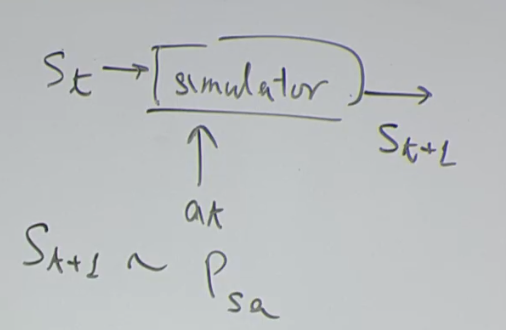 St → simulator → St+1
at
St+1 ~ Psa